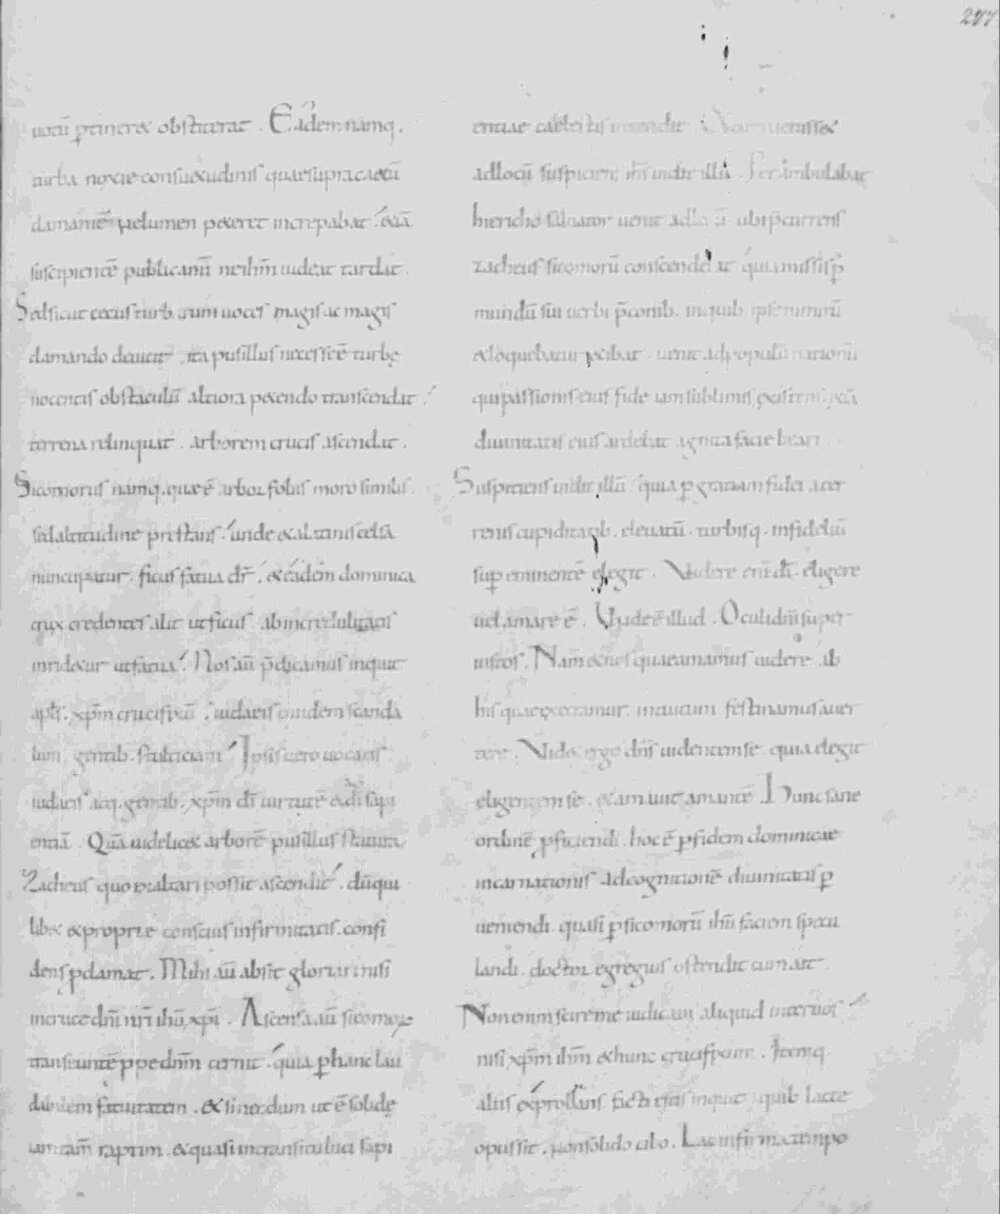 277
uotū ꝑtinerꝫ obstiterat . Eadem namq.
turba noxie consuetudinis quae supra cecū
clamantē ne lumen peteret increpabat . etiā
suscipientē publicanū ne ihm̄ uideat tardat .
Sed sicut cecus turbarum uoces magis ac magis
clamando deuicit . ita pusillus necesse ē turbę
nocentis obstaculū altiora petendo transcendat .
terrena relinquat . arborem crucis ascendat .
Sicomorus namq. quae ē arbor foliis moro similis .
sed altitudine prestans . unde & a latinis celsa
nuncupatur . ficus fatua dr̄ . & eadem dominica
crux credentes alit ut ficus . ab incredulis
inridetur ut fatua . Nos aū p̄dicamus inquit
apl̄s . xp̄m crucifixū . iudaeis quidem scanda
lum . gentib . stultitiam . Ipsis uero uocatis
iudaeis atq. gentib . xp̄m dī uirtutē & dī sapi
entiā . Quā uidelicet arborē pusillus statura
Zacheus quo exaltari possit ascendit . dū qui
libet & propriae conscius infirmitatis . confi
dens ꝓclamat . Mihi aū absit gloriari nisi
in cruce dn̄i nr̄i ihū xp̄i . Ascensa aū sicomoro
transeuntē ꝓpe dn̄m cernit . quia ꝑ hanc lau
dabilem fatuitatem . & si necdum ut ē solide
iam tam̄ raptim . & quasi in transitu luci sapi
entiae caelestis intendit .
ad locū suspiciens ihs̄ uidit illū . Perambulabat
hiericho saluator uenit ad locū ubi p̄currens
zacheus sicomorū conscenderat quia missis ꝑ
mundū sui uerbi p̄conib . in quib ipse nimirū
& loquebatur & ibat . uenit ad populū nationū
qui passionis eius fide iam sublimis etiā
diuinitatis eius ardebat agnita facie beari .
Suspiciens uidit illū . quia ꝑ gratiam fidei a ter
renis cupiditatib . eleuatū . turbisq. infideliū
suꝑeminentē elegit . Videre eni dī . eligere
uel amare ē . Vnde ē illud . Oculi dn̄i super
iustos . Nam & nos quae amamus uidere . ab
his quae execramur . intuitum festinamus auer
tere . Vidit ergo dn̄s uidentem se . quia elegit
eligentem se . & amauit amantē . Hunc sane
ordinē ꝓficiendi . hoc ē ꝑ fidem dominicae
incarnationis ad cognitionē diuinitatis ꝑ
ueniendi . quasi ꝑ sicomorū ihū faciem specu
landi . doctor egregius ostendit cum ait .
Non enim scire me iudicaui aliquid inter uos
nisi xp̄m ihm̄ & hunc crucifixum . Itemq
aliis exprobrans . facti estis inquit . quib lacte
opus sit . non solido cibo . Lac infirma tempo